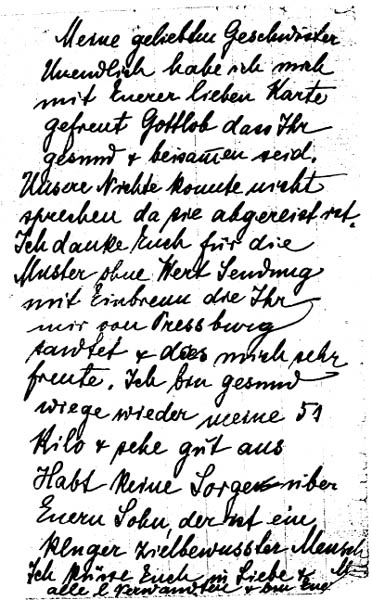 Meine geliebten Geschwister
Unendlich habe ich mich
mit Euerer lieben Karte
gefreut Gottlob dass Ihr
gesund & beisam̅en seid.
Unsere Nichte konnte nicht
sprechen da sie abgereist ist.
Ich danke Euch für die
Muster ohne Wert Sendung
mit Einbrenn die Ihr
mir von Pressburg
sandtet & dies mich sehr
freute. Ich bin gesund
wiege wieder meine 51
Kilo & sehe gut aus
Habt keine Sorgen über
Euern Sohn, der ist ein
kluger zielbewusster Mensch
Ich küsse Euch in Liebe &
alle l Verwandten & bin Eue